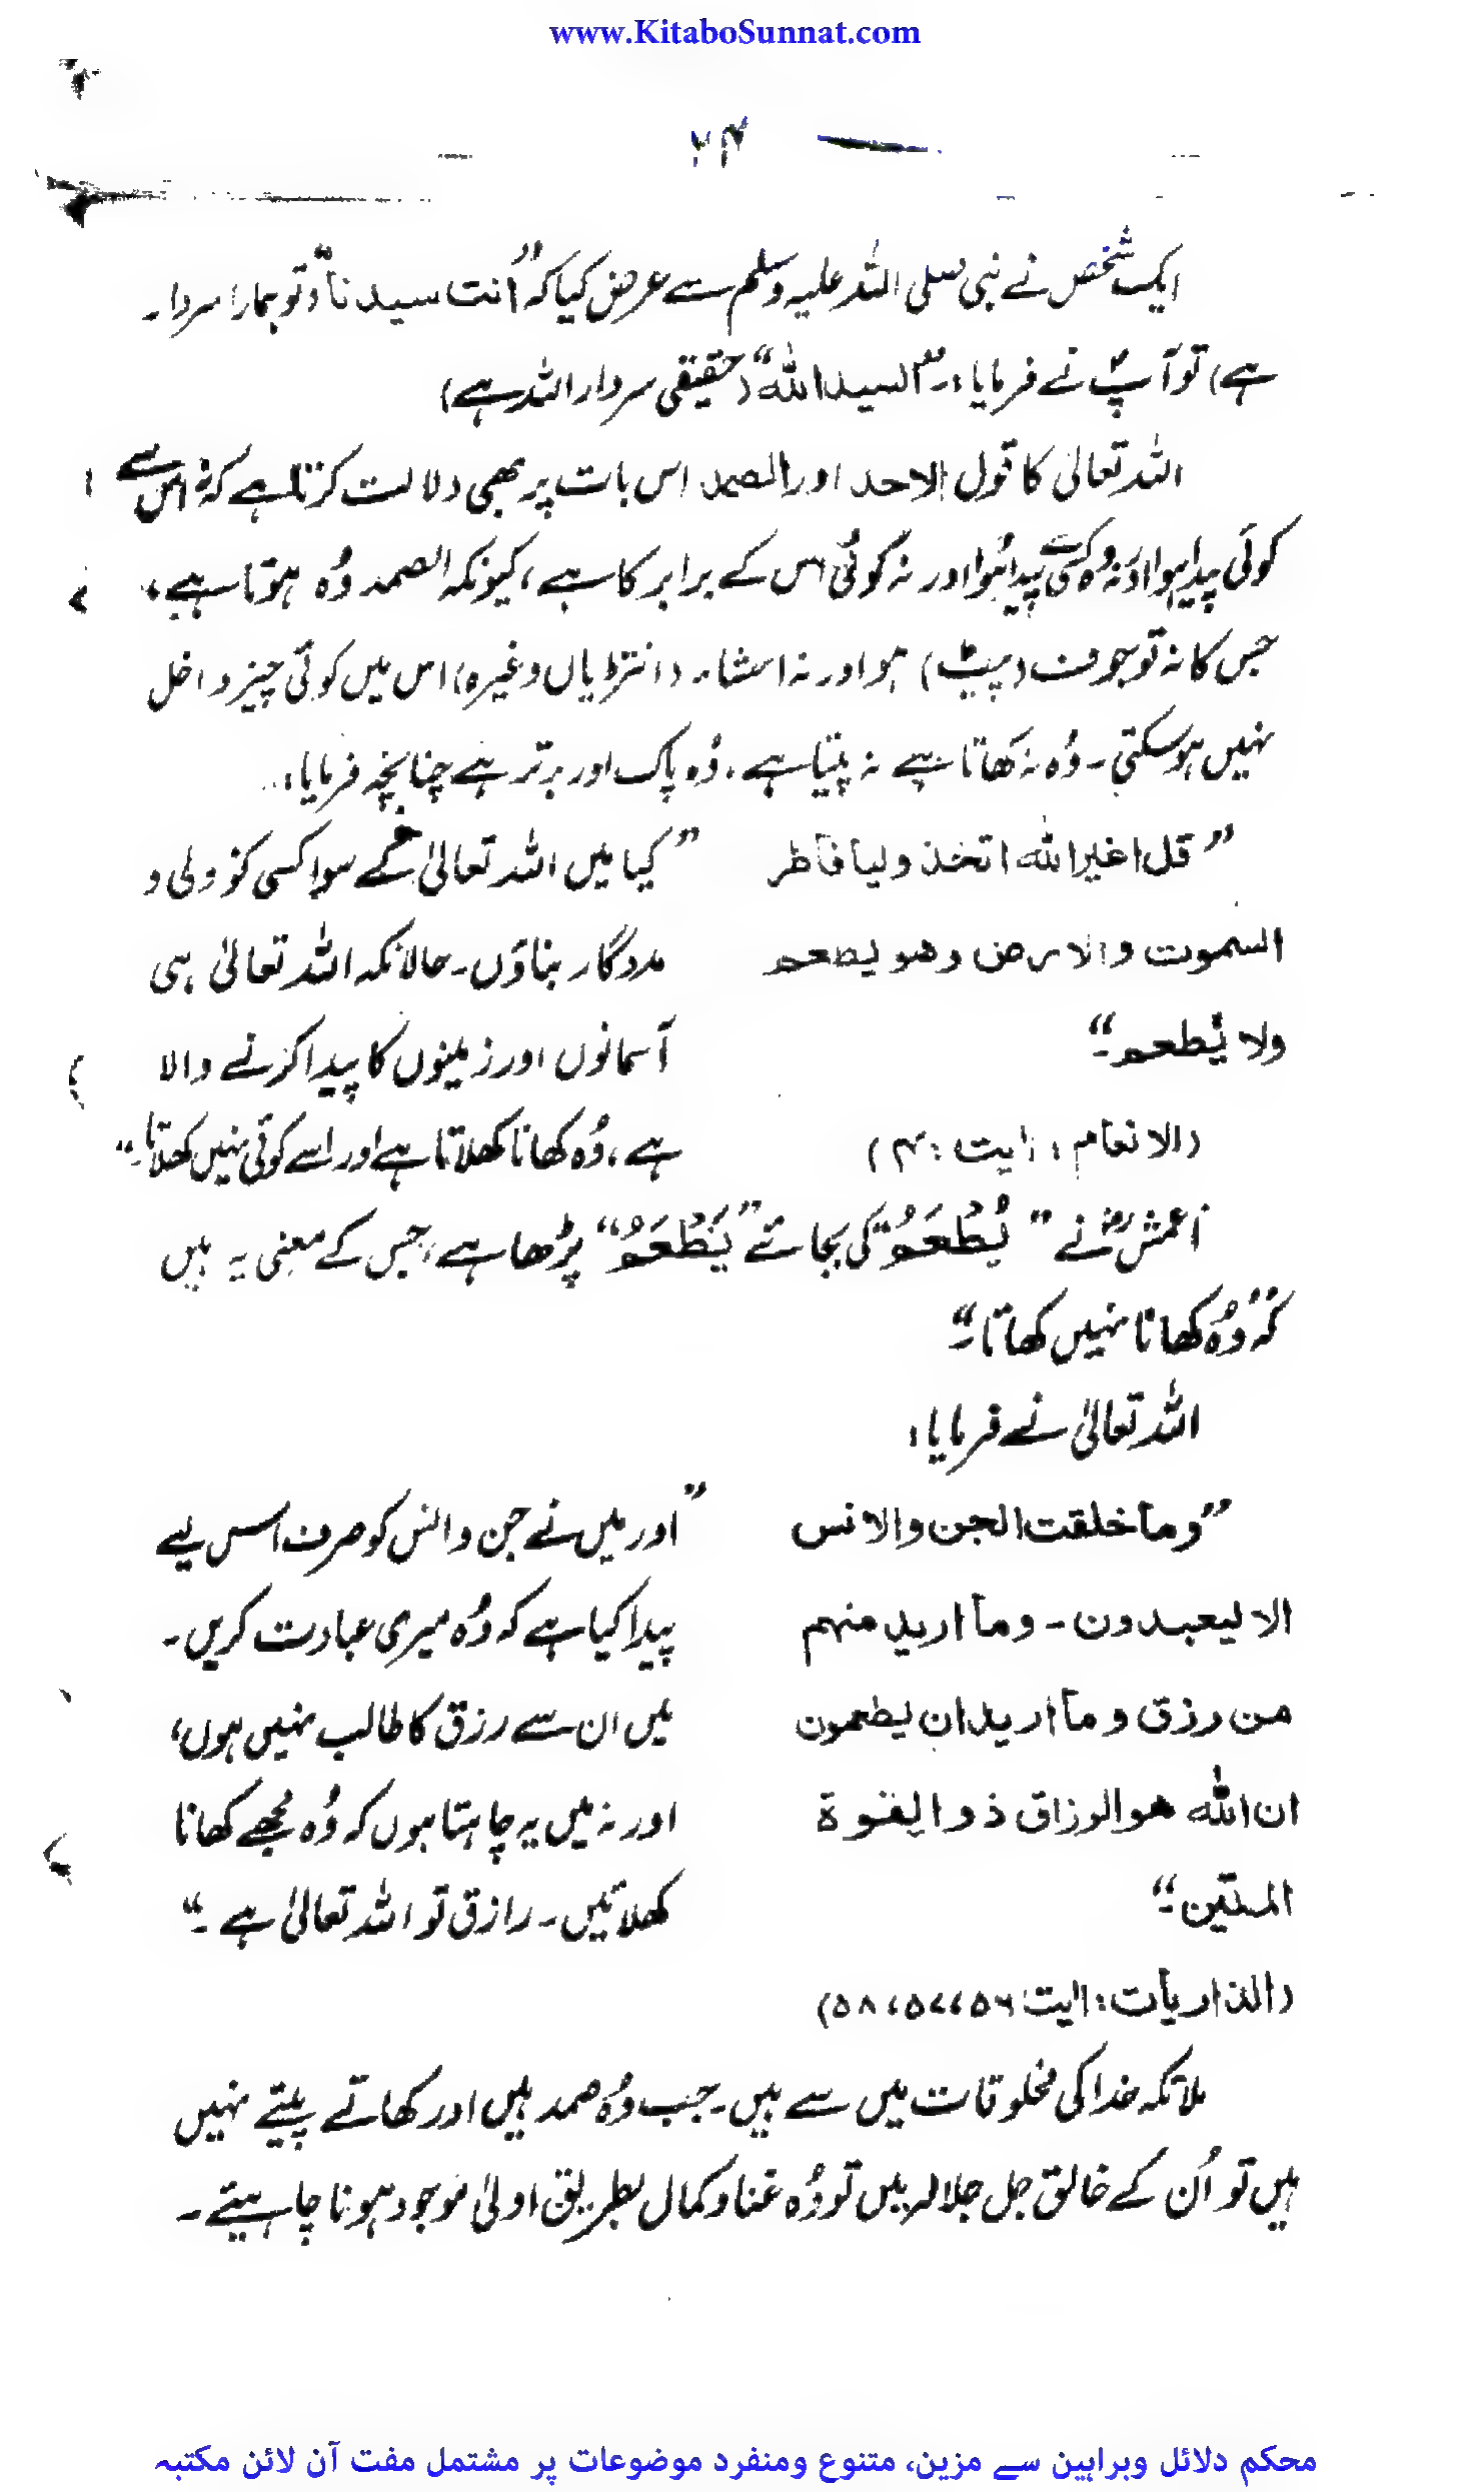 www.KitaboSunnat.com
۲۴
ایک شخص نے نبی صلی اللہ علیہ وسلم سے عرض کیا کہ "انت سیدنا" (تو ہمارا سردار
ہے) تو آپؐ نے فرمایا:۔ "السید اللہ" (حقیقی سردار اللہ ہے)
اللہ تعالیٰ کا قول الاحد اور الصمد اس بات پر بھی دلالت کرتا ہے کہ نہ اس سے
کوئی پیدا ہوا اور نہ وہ کسی سے پیدا ہُوا اور نہ کوئی اس کے برابر کا ہے، کیونکہ الصمد وُہ ہوتا ہے،
جس کا نہ تو جوف (پیٹ) ہو اور نہ احشاء (انتڑیاں وغیرہ) اس میں کوئی چیز داخل
نہیں ہو سکتی۔ وُہ نہ کھاتا ہے نہ پیتا ہے۔ وُہ پاک اور برتر ہے چنانچہ فرمایا:
"قل اغیر اللہ اتخذ ولیا فاطر
السموت والارض وھو یطعم
ولا یُطعم۔"
(الانعام: آیت: ۱۴)
"کیا میں اللہ تعالیٰ کے سوا کسی کو ولی و
مددگار بناؤں۔ حالانکہ اللہ تعالیٰ ہی
آسمانوں اور زمینوں کا پیدا کرنے والا
ہے، وُہ کھانا کھلاتا ہے اور اسے کوئی نہیں کھلاتا۔"
اعمشؒ نے "یُطْعَمُ" کی بجائے "یَطْعَمُ" پڑھا ہے، جس کے معنی یہ ہیں
کہ "وُہ کھانا نہیں کھاتا۔"
اللہ تعالیٰ نے فرمایا:
"وما خلقت الجن والانس
الا لیعبدون۔ وما ارید منہم
من رزق وما ارید ان یطعمون
ان اللہ ھو الرزاق ذو القوۃ
المتین۔"
(الذاریات: آیت ۵۶، ۵۷، ۵۸)
"اور میں نے جن و انس کو صرف اس لیے
پیدا کیا ہے کہ وُہ میری عبادت کریں۔
میں ان سے رزق کا طالب نہیں ہوں،
اور نہ میں یہ چاہتا ہوں کہ وُہ مجھے کھانا
کھلائیں۔ رازق تو اللہ تعالیٰ ہے۔"
ملائکہ خدا کی مخلوقات میں سے ہیں۔ جب وُہ صمد ہیں اور کھاتے پیتے نہیں
ہیں تو اُن کے خالق جل جلالہ میں تو وُہ غنا و کمال بطریق اولیٰ موجود ہونا چاہیئے۔
محکم دلائل وبراہین سے مزین، متنوع ومنفرد موضوعات پر مشتمل مفت آن لائن مکتبہ